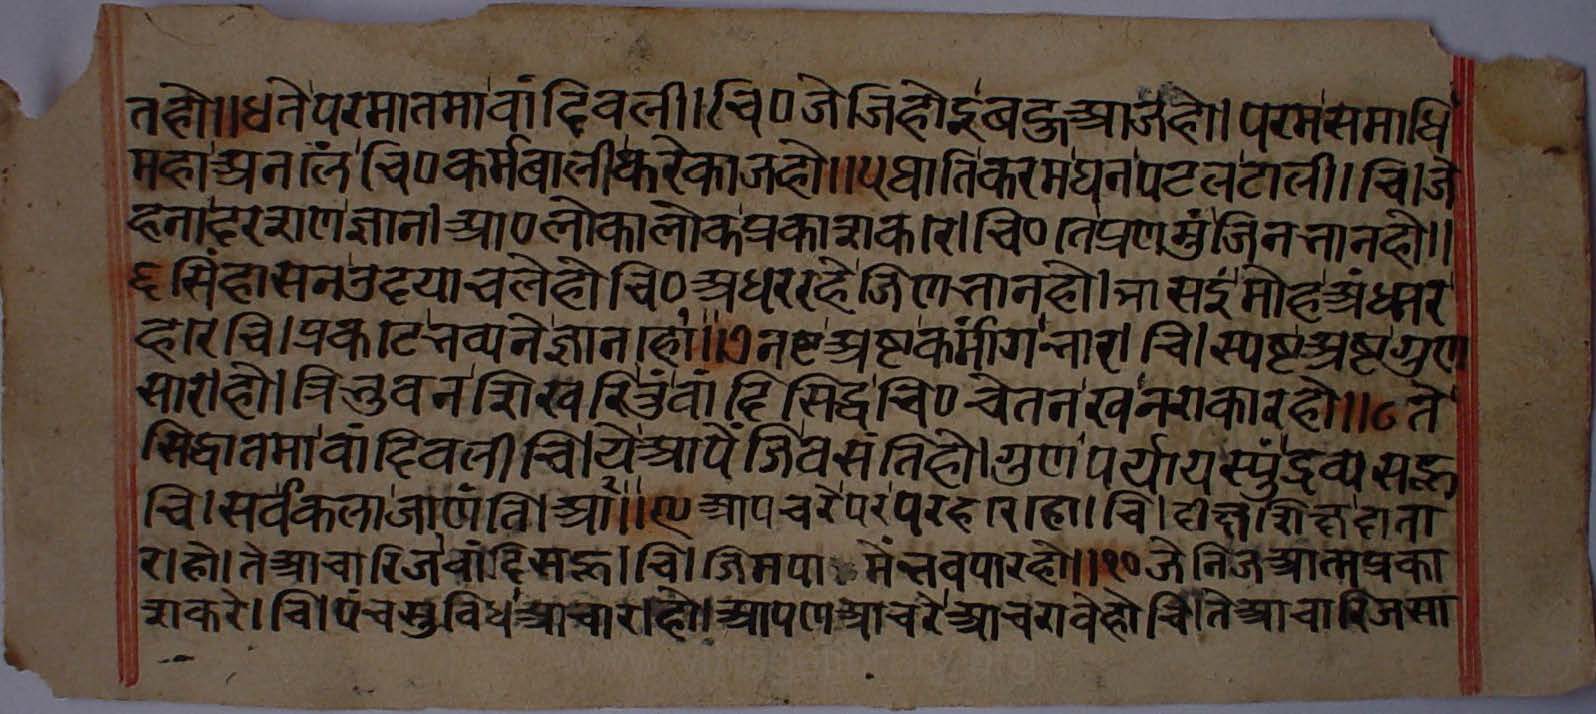 तहो॥४ ते परमातमा वांदिवली। चि० जे जि होइ बहु आज हो॥ परम समाधि
महा अनलिं चि० कर्म बाली करे काज हो॥५ घाति करम घन पटल टाली। चि। जे
हना दरशण ज्ञान। आ० लोकालोक प्रकाशकार। चि० ते प्रणमुं जिनभान हो॥
६ सिंहासन उदयाचले हो चि० अधर रहे जिणभान हो। भासइं मोह अंधार
हार चि। प्रकटि भव्यने ज्ञान। हो॥७ नष्ट अष्ट कर्म भार। चि। स्पष्ट अष्ट गुण
सार। हो। त्रिभुवन शिखरि तुं वांदि सिद्ध चि० चेतन ख नराकार हो॥८ ते
सिद्धातमा वांदिवली चि। ये आपें जि वसंति हो। गुण पर्याय स्युं द्रव्य सहू
चि। सर्व कला जाणंति। आं॥९ आप चरे पर परहार। हो। चि। दीक्षा शिक्षा दाता
र। हो। ते आचारिज वांदि सहू। चि। जिम पा मे भवपार हो॥१० जे निज आत्म प्रका
श करे। चि। पंचसु विध आचार। हो। आपण आचरे आचरावे हो चि। ते आचारिज सा